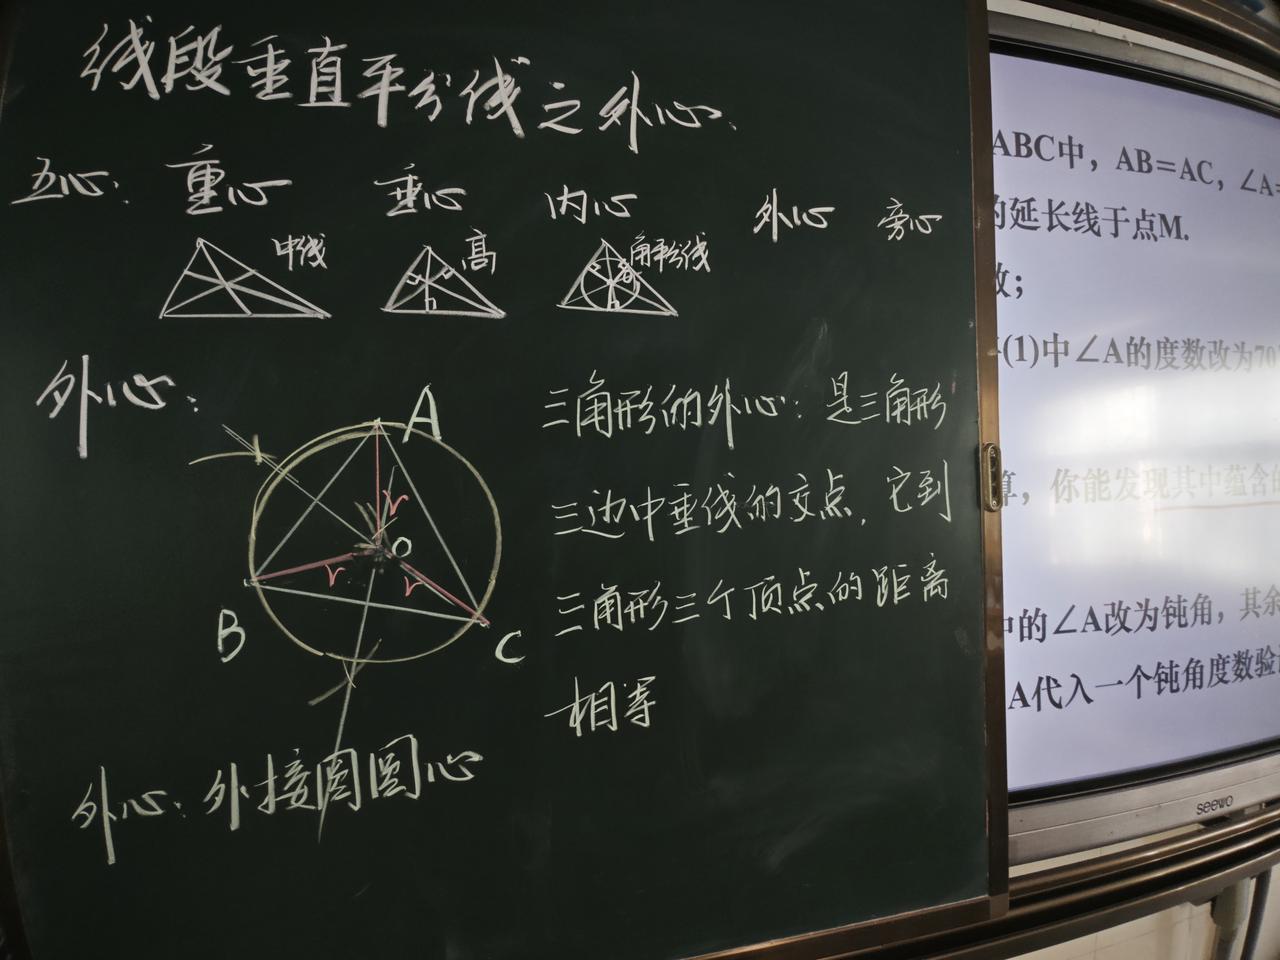 线段垂直平分线之外心.
五心: 重心 垂心 内心 外心 旁心
中线 高 角平分线
外心:
A
r
O
r r
B
C
三角形的外心: 是三角形
三边中垂线的交点, 它到
三角形三个顶点的距离
相等
外心: 外接圆圆心
ABC中, AB=AC, ∠A=
的延长线于点M.
数;
(1)中∠A的度数改为70
算, 你能发现其中蕴含的
中的∠A改为钝角, 其余
A代入一个钝角度数验
seewo